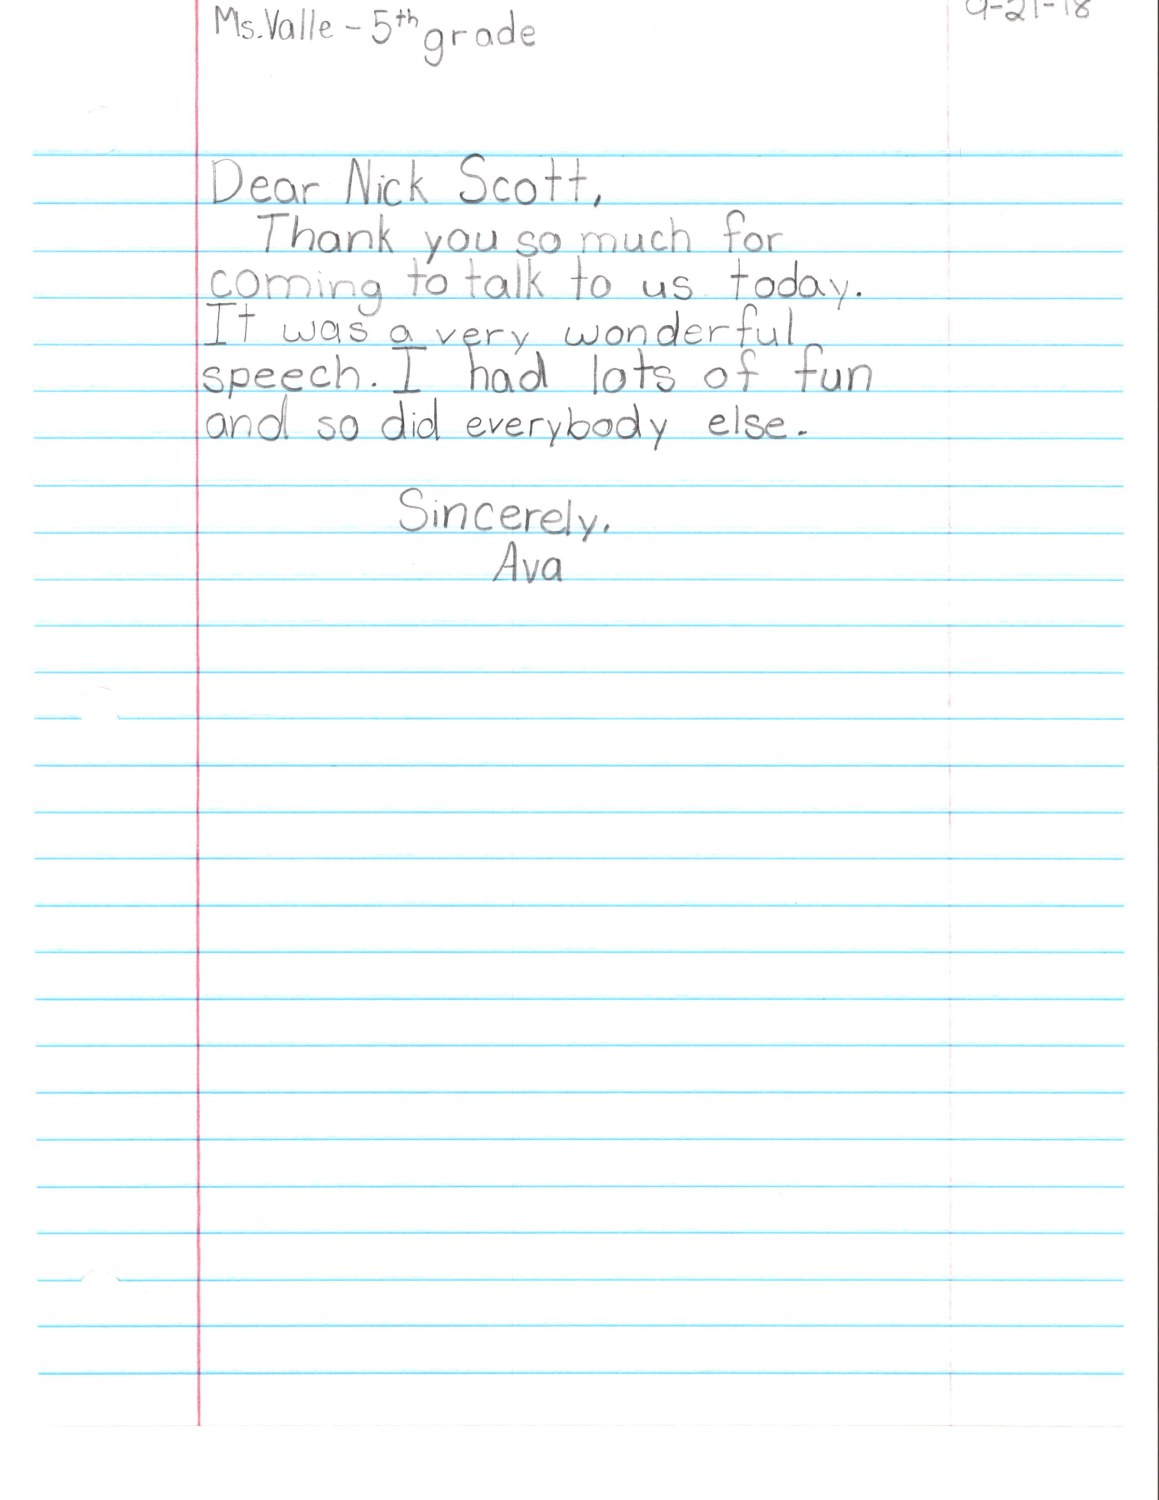 Ms. Valle - 5th grade 9-21-18
Dear Nick Scott,
Thank you so much for
coming to talk to us today.
It was a very wonderful
speech. I had lots of fun
and so did everybody else.
Sincerely,
Ava